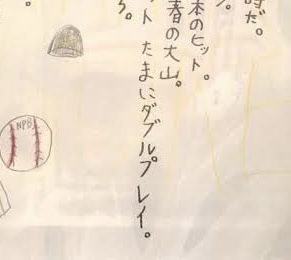 時だ。
。
本のヒット。
春の大山。
ット たまにダブルプレイ。
ろ。
。
NPB